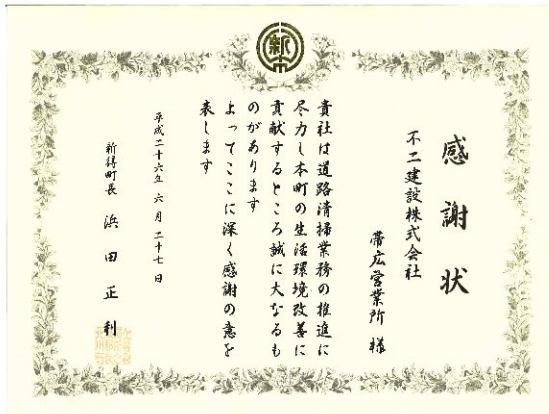 新
感謝状
不二建設株式会社
帯広営業所 様
貴社は道路清掃業務の推進に
尽力し本町の生活環境改善に
貢献するところ誠に大なるも
のがあります
よってここに深く感謝の意を
表します
平成二十六年 六月 二十七日
新得町長 浜田正利